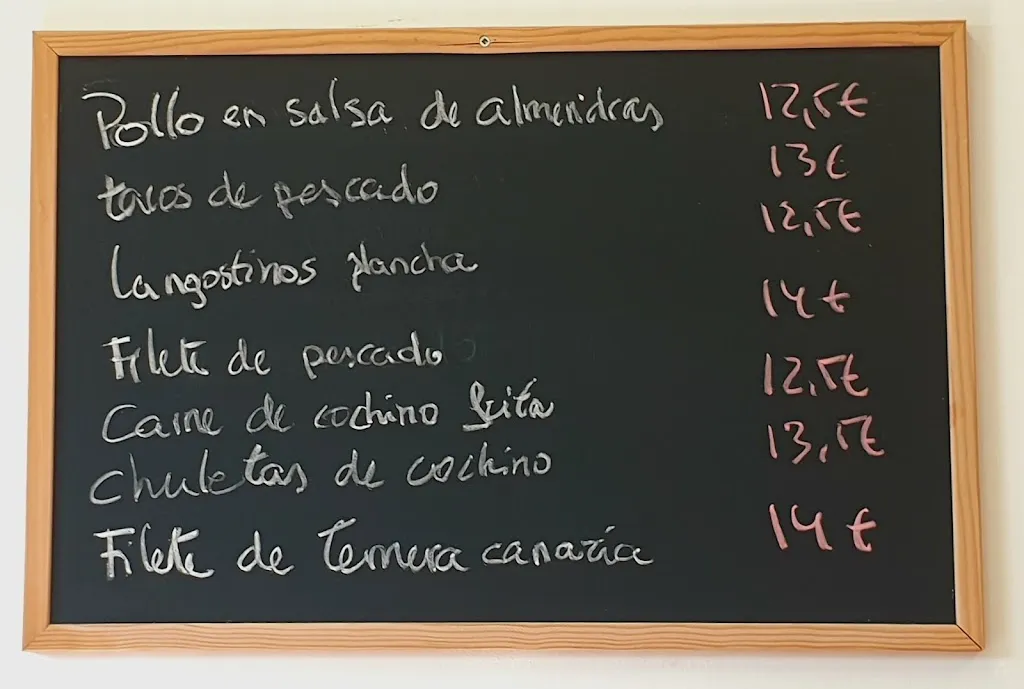 Pollo en salsa de almendras 12,5€
tacos de pescado 13€
Langostinos plancha 12,5€
Filete de pescado 14€
Carne de cochino frita 12,5€
Chuletas de cochino 13,5€
Filete de Ternera canaria 14€